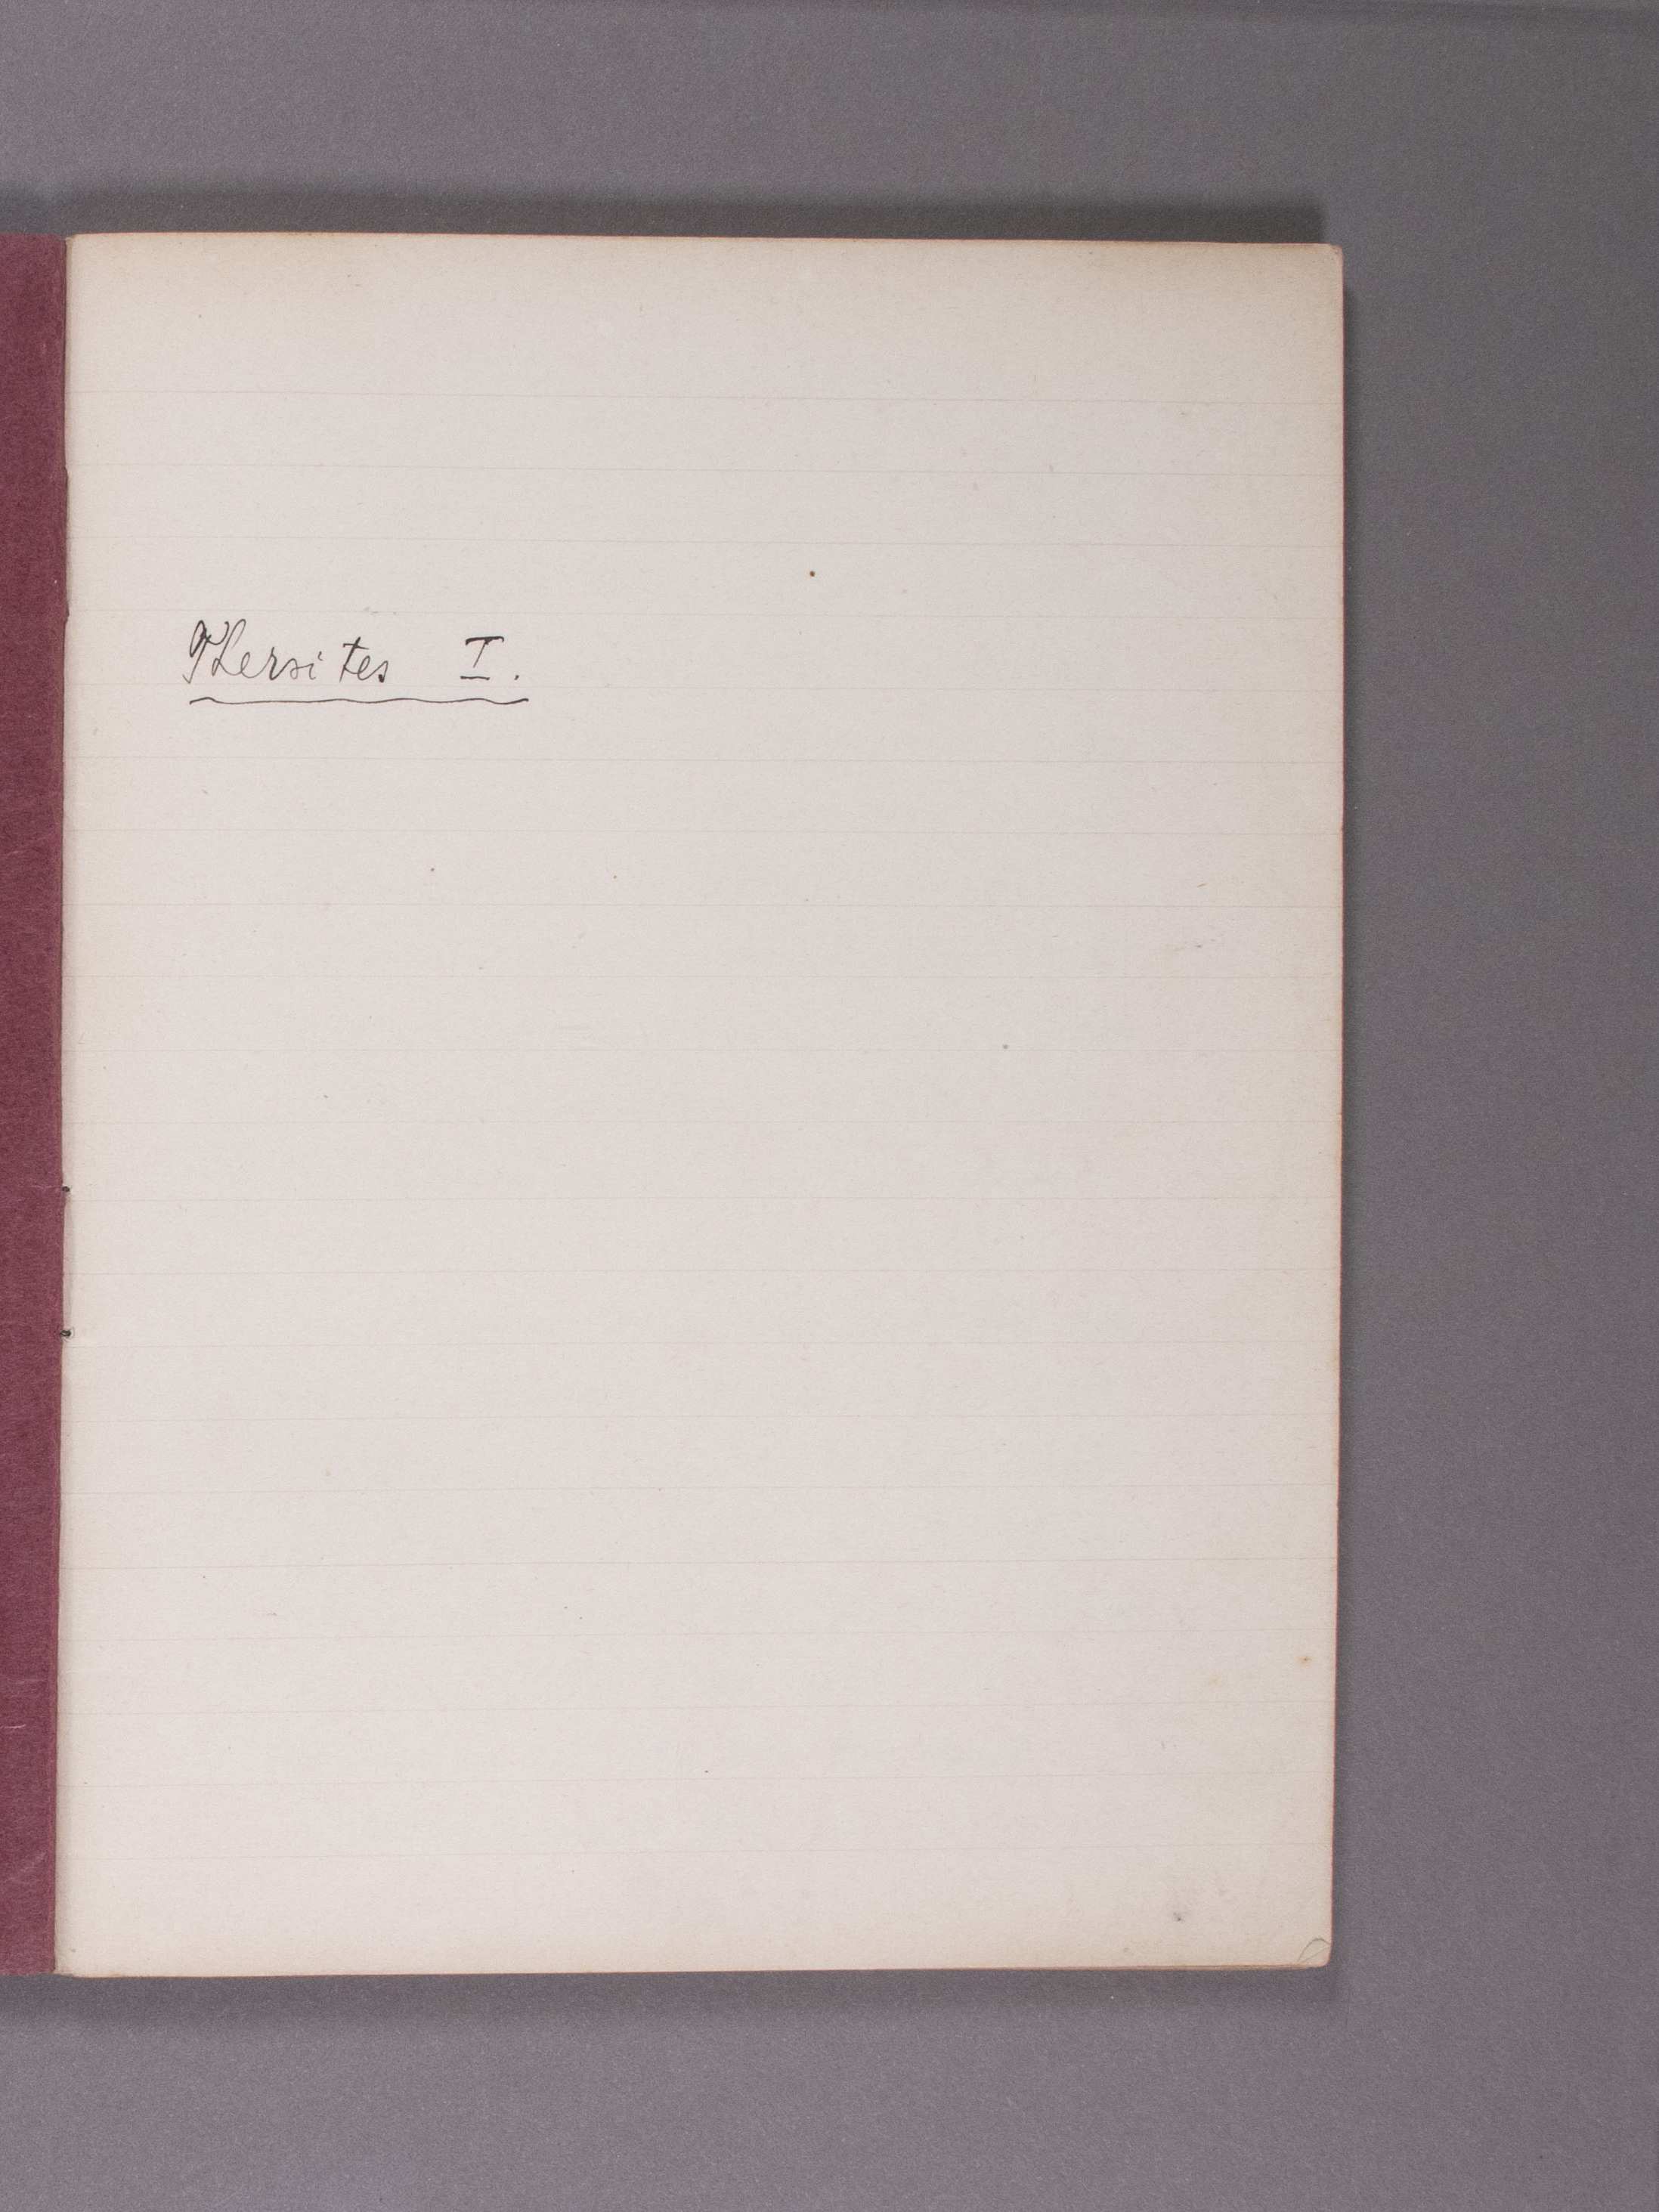 Thersites I.